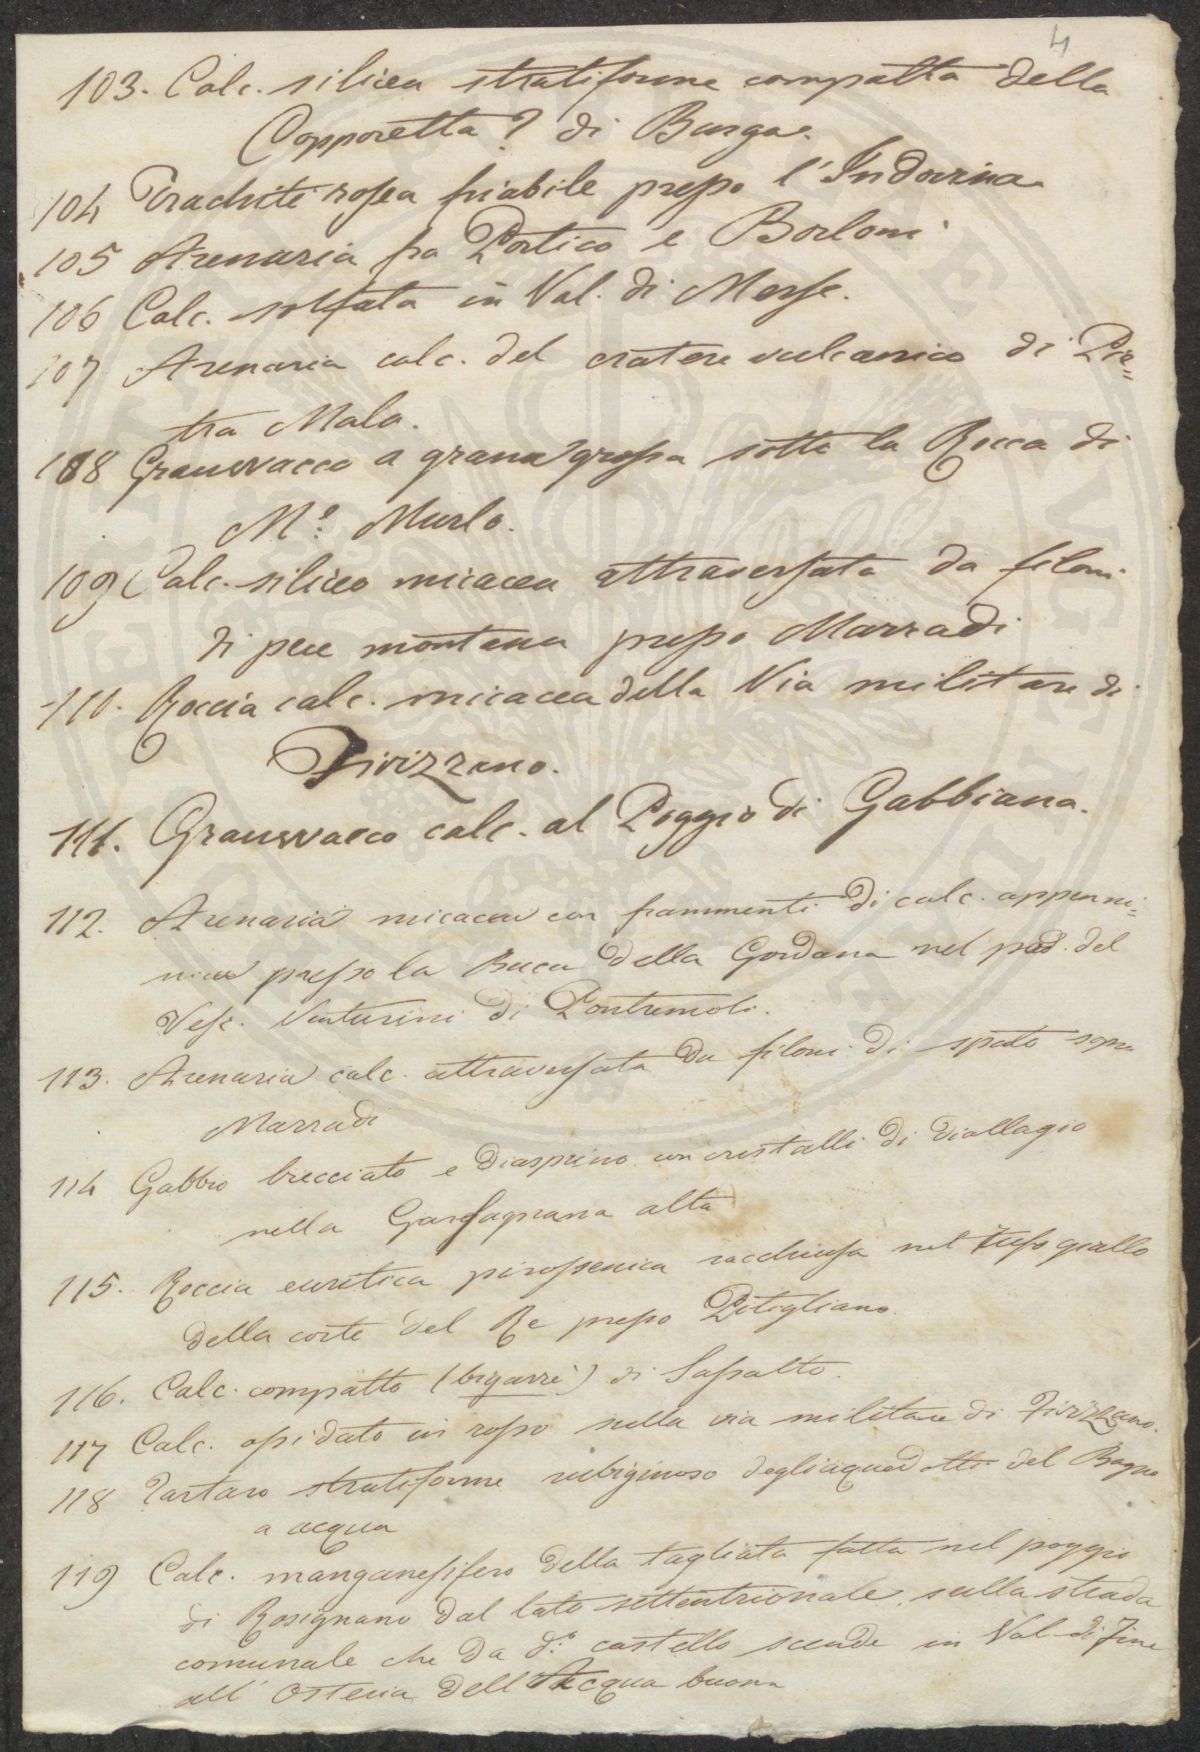 4
103. Calc. silicea stratiforme compatta della
Copporetta? di Barga.
104 Trachite rossea friabile presso l'Indovina
105 Arenaria fra Portico e Borloni
106 Calc. solfata in Val. di Merse.
107 Arenaria calc. del cratere vulcanico di Pie=
tra Mala.
108 Grauwacca a grana grossa sotto la Rocca di
M.º Murlo.
109 Calc. siliceo micacea attraversata da filoni
di pece montana presso Marradi
110. Roccia calc. micacea della Via militare di
Fivizzano.
111. Grauwacco calc. al Poggio di Gabbiana.
112. Arenaria micacea con frammenti di calc. appenni=
nica presso la Buca della Gordana nel pod. del
Vesc. Venturini di Pontremoli.
113. Arenaria calc. attraversata da filoni di spato sopra
Marradi
114 Gabbro brecciato e diasprino con cristalli di diallagio
nella Garfagnana alta
115. Roccia euritica pirossenica racchiusa nel tufo giallo
della corte del Re presso Pitigliano.
116. Calc. compatto (bigarrè) di Sassalto.
117 Calc. ossidato in rosso nella via militare di Fivizzano.
118 Tartaro stratiforme rubiginoso degli aquedotti del Bagno
a acqua
119 Calc. manganesifero della tagliata fatta nel poggio
di Rosignano dal lato settentrionale, sulla strada
comunale che da d.º castello scende in Val di Fine
all' Osteria dell'Acqua buona